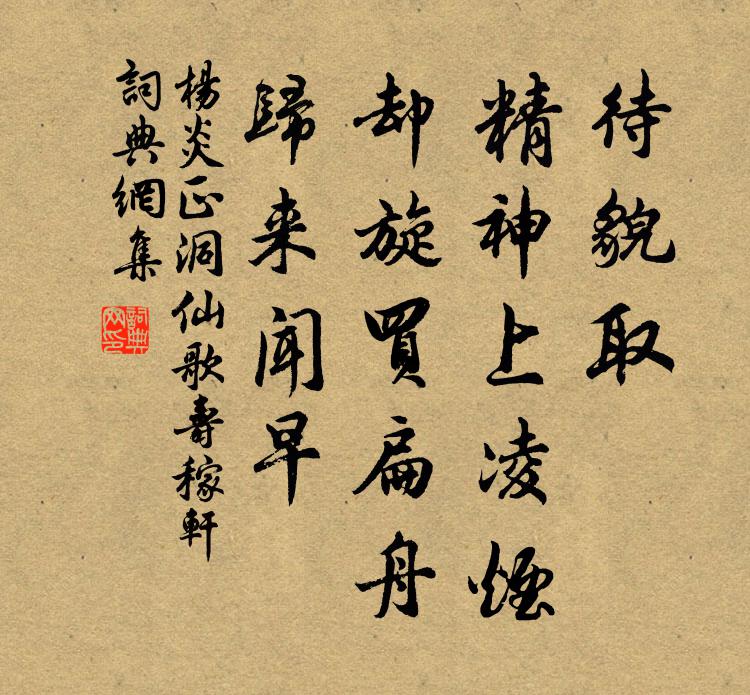 待貌取
精神上凌煙
却旋買扁舟
歸来聞早
楊炎正洞仙歌壽稼軒
詞典網集
詞典网印